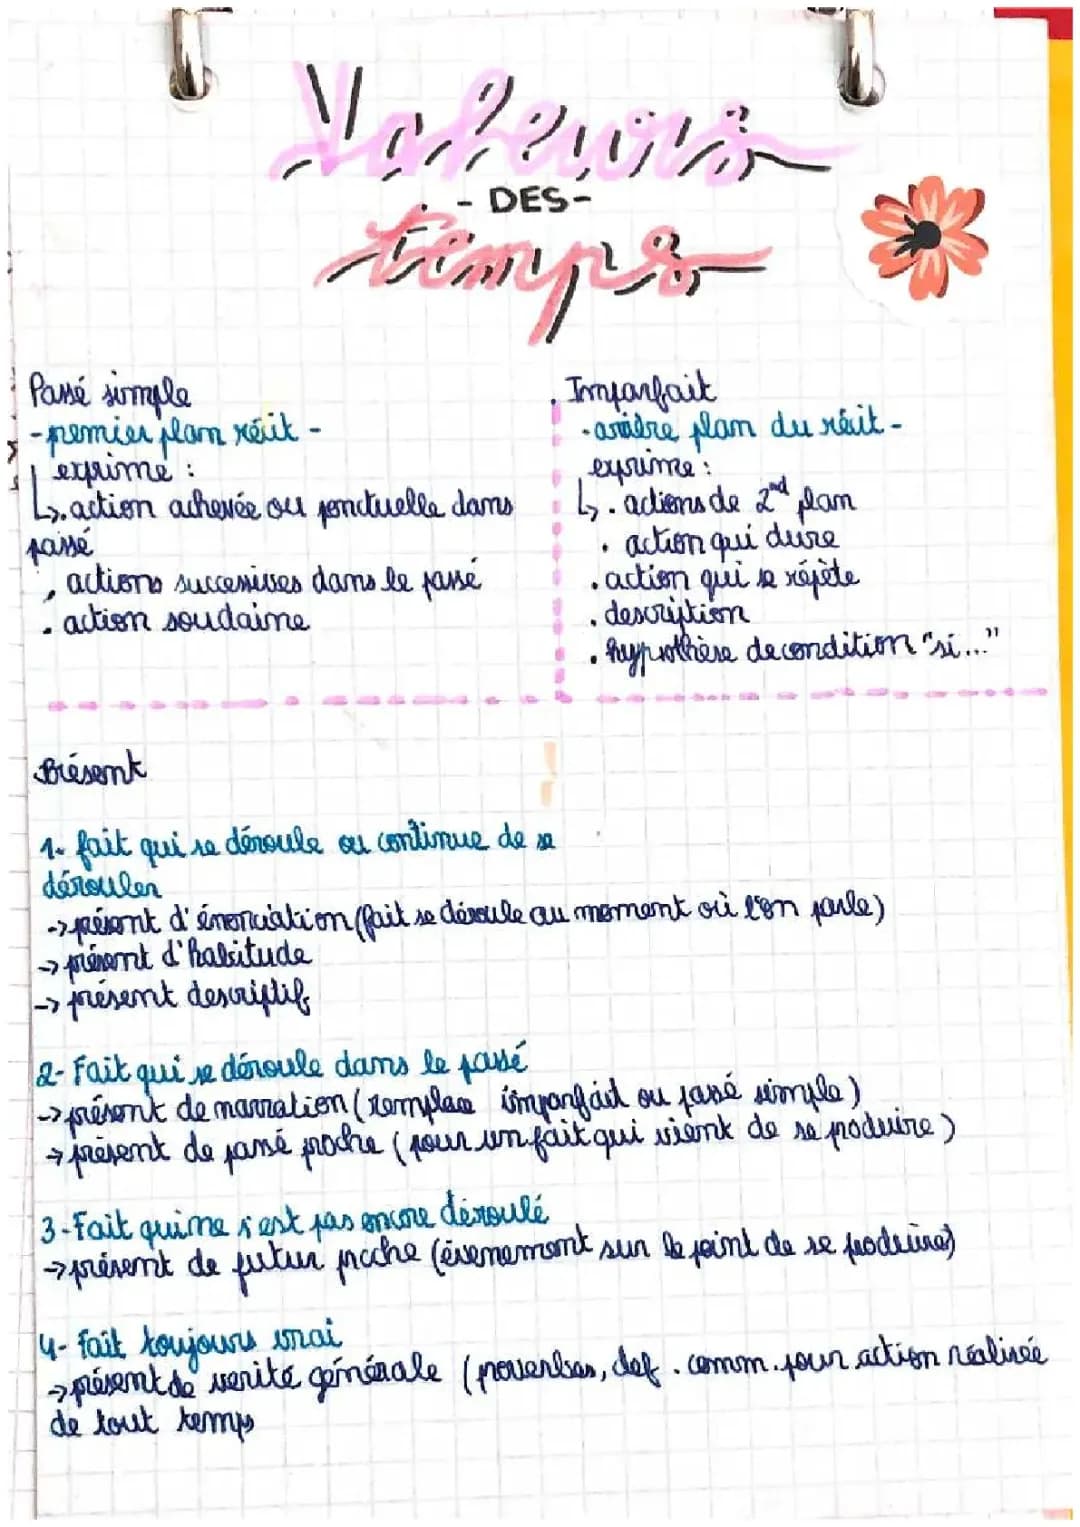 Valeurs
- DES -
temps
Passé simple
- premier plan récit -
exprime :
↳ . action achevée ou ponctuelle dans
passé
. actions successives dans le passé
. action soudaine
. Imparfait
- arrière plan du récit -
exprime :
↳ . actions de 2nd plan
. action qui dure
. action qui se répète
. description
. hypothèse de condition "si..."
Présent
1- fait qui se déroule ou continue de se
dérouler
-> présent d'énonciation (fait se déroule au moment où l'on parle)
-> présent d'habitude
-> présent descriptif
2- Fait qui se déroule dans le passé
-> présent de narration (remplace imparfait ou passé simple)
-> présent de passé proche (pour un fait qui vient de se produire)
3- Fait qui ne s'est pas encore déroulé
-> présent de futur proche (évenement sur le point de se produire)
4- fait toujours vrai
-> présent de verité générale (proverbes, def. comm. pour action réalisée
de tout temps